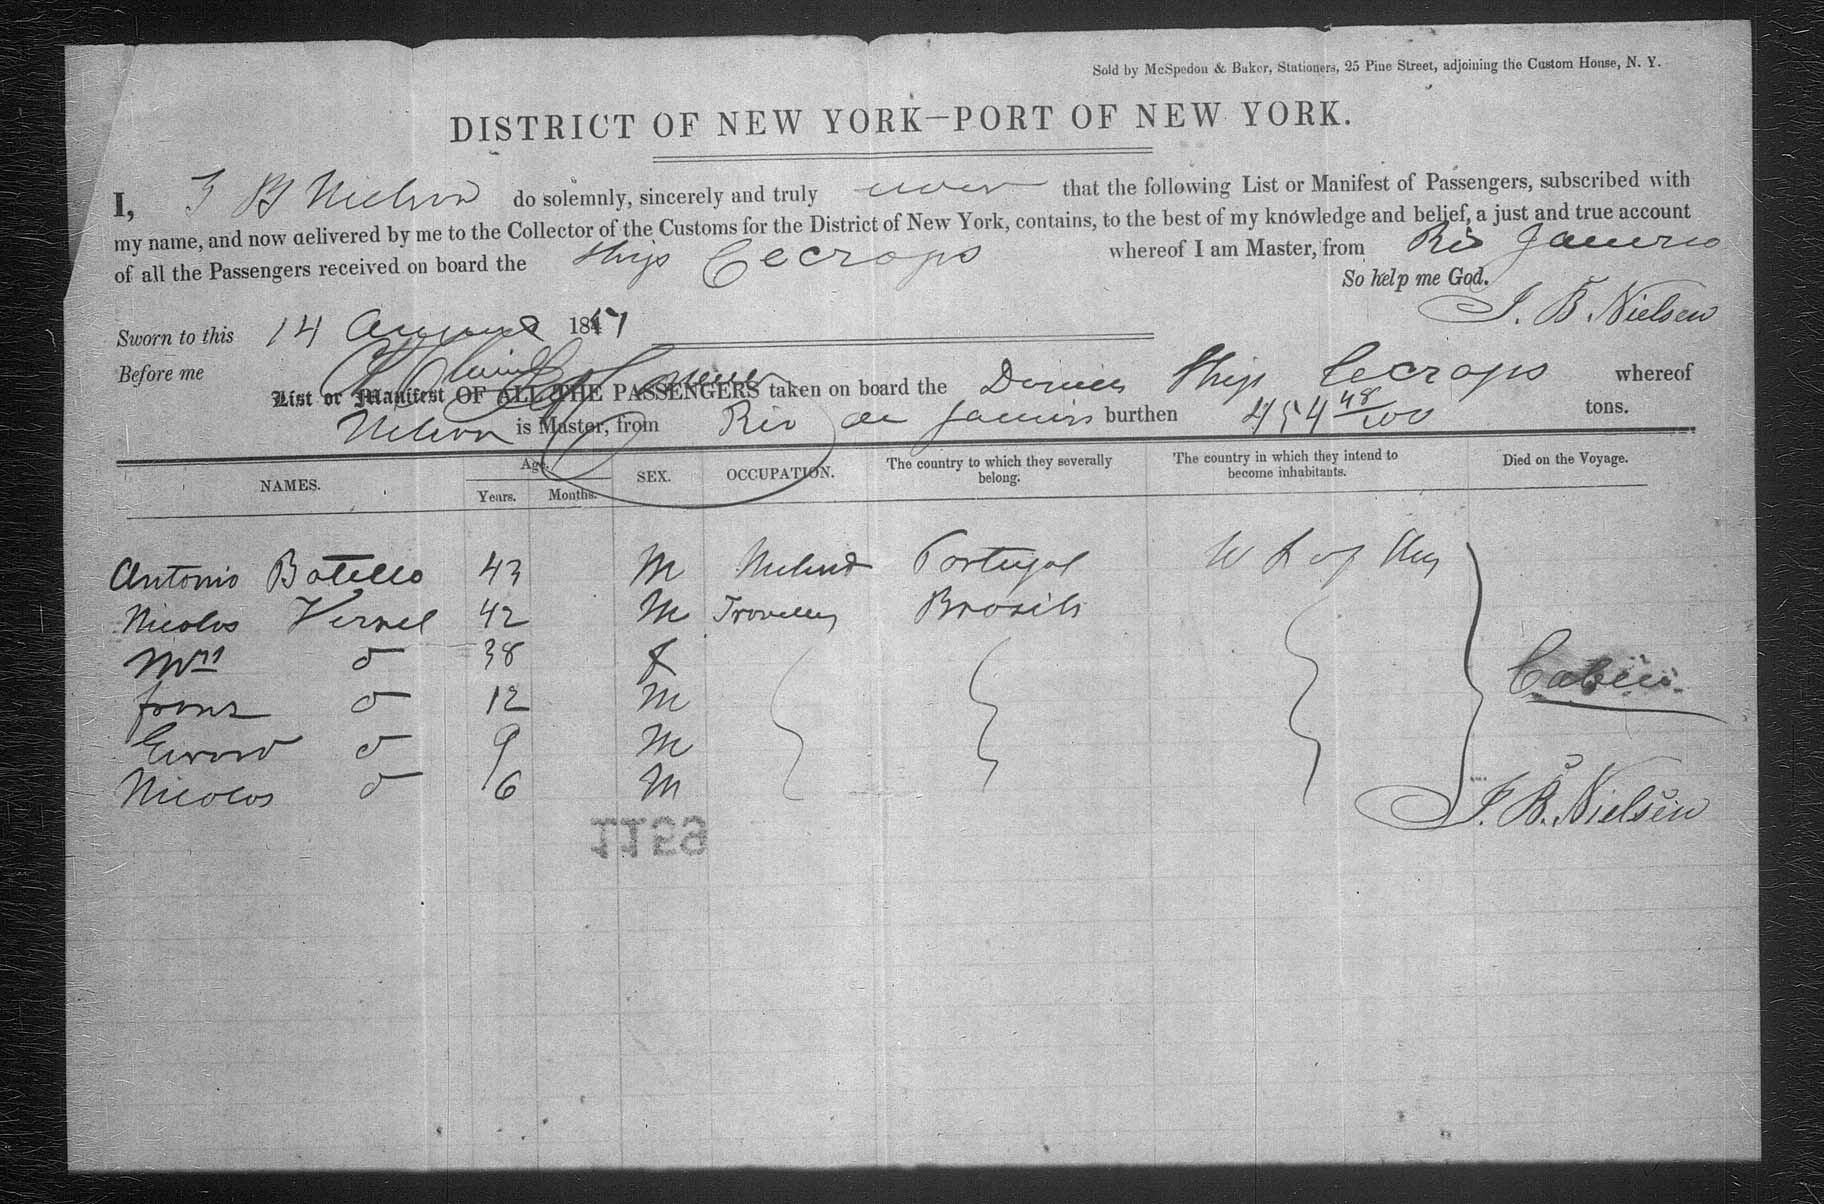 Sold by McSpedon & Baker, Stationers, 25 Pine Street, adjoining the Custom House, N. Y.
DISTRICT OF NEW YORK—PORT OF NEW YORK.
I, J B Nielson do solemnly, sincerely and truly swear that the following List or Manifest of Passengers, subscribed with
my name, and now delivered by me to the Collector of the Customs for the District of New York, contains, to the best of my knowledge and belief, a just and true account
of all the Passengers received on board the Ship Cecrops whereof I am Master, from Rio Janeiro
So help me God.
J. B. Nielsen
Sworn to this 14 August 1851
Before me
List or Manifest OF ALL THE PASSENGERS taken on board the Ship Cecrops whereof
Nelson is Master, from Rio de Janeiro burthen 454 48/100 tons.
NAMES. Age. Years. Months. SEX. OCCUPATION. The country to which they severally belong. The country in which they intend to become inhabitants. Died on the Voyage.
Antonio Botello 43 M Portugal
Nicolos Vernel 42 M Brosils
Mrs do 38 f
do 12 M
do 9 M
Nicolos do 6 M
Cabin
J. B. Nielsen
1159